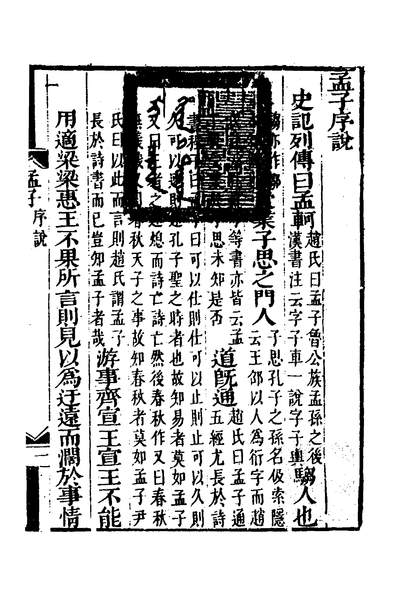 孟子序說
史記列傳曰孟軻
趙氏曰孟子魯公族孟孫之後
漢書注云字子車一說字子輿
騶人也
業子思之門人
子思孔子之孫名伋索隱
云王卲以人為衍字而趙
等書亦皆云孟
子思未知是否
道旣通
趙氏曰孟子通
五經尤長於詩
曰可以仕則仕可以止則止可以久則
久可以速則速孔子聖之時者也故知易者莫如孟子
又曰王者之迹熄而詩亡詩亡然後春秋作又曰春秋
春秋天子之事故知春秋者莫如孟子尹
氏曰以此而言則趙氏謂孟子
長於詩書而已豈知孟子者哉
游事齊宣王宣王不能
用適梁梁惠王不果所言則見以為迂遠而濶於事情
孟子序說
一